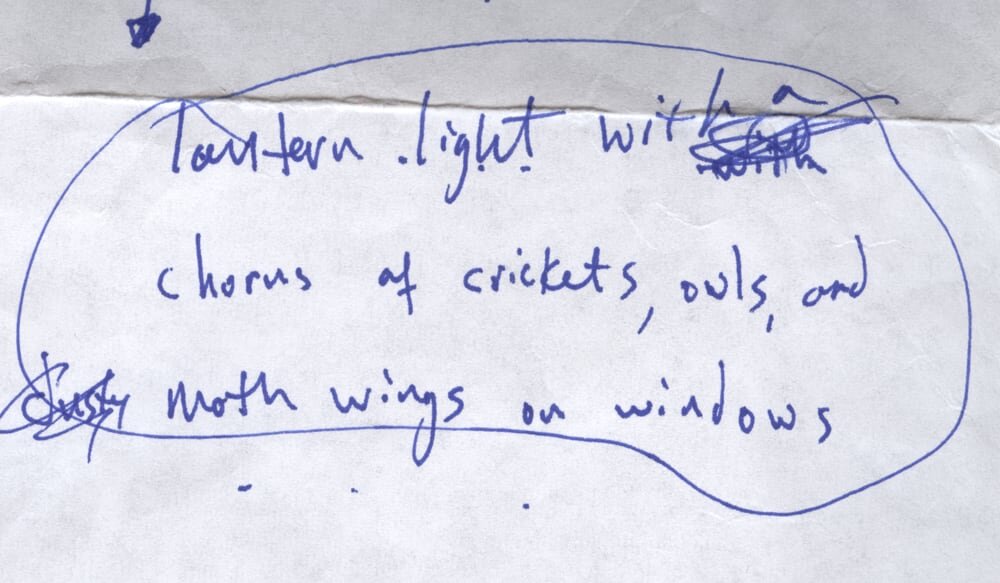 lantern light with a
chorus of crickets, owls, and
moth wings on windows